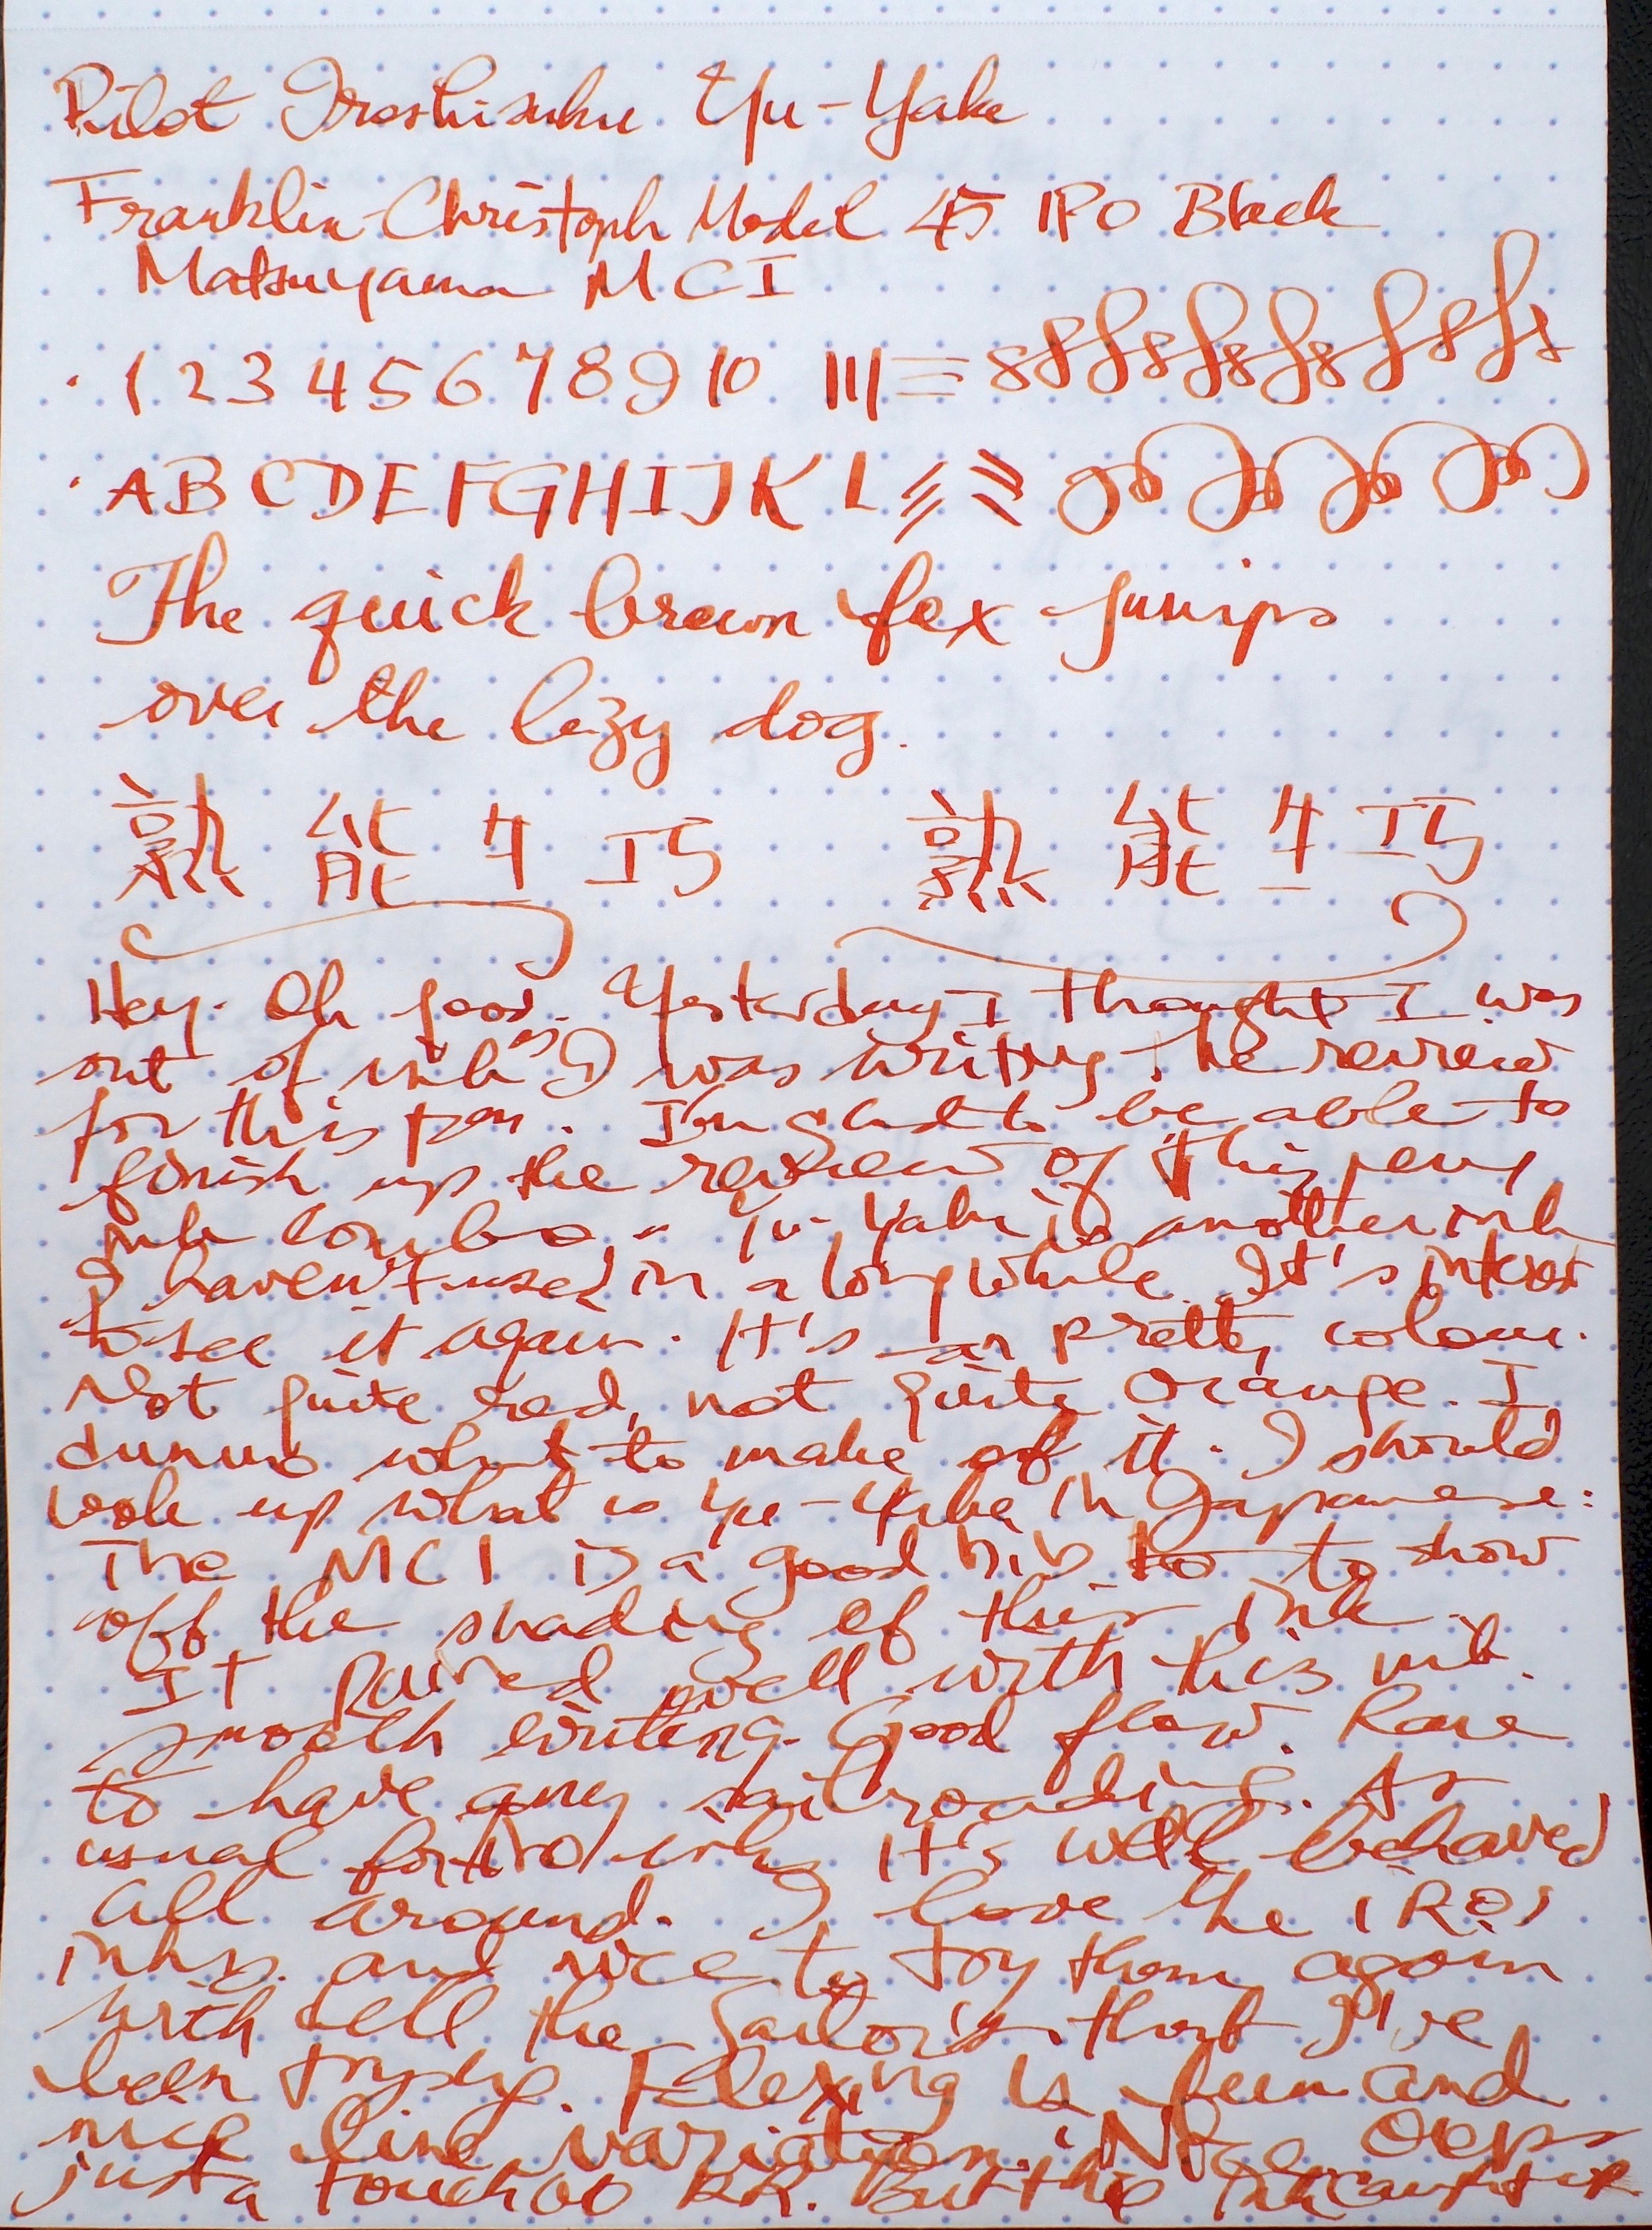 Pilot Iroshizuku Yu-Yake
Franklin-Christoph Model 45 IPO Black
Matsuyama MCI
1 2 3 4 5 6 7 8 9 10
A B C D E F G H I J K L
The quick brown fox jumps
over the lazy dog.
熟能生巧 熟能生巧
Hey. Oh good. Yesterday I thought I was
out of ink as I was writing the review
for this pen. I'm glad to be able to
finish up the review of this pen/
ink combo. Yu-Yake is another ink
I haven't used in a long while. It's
to see it again. It's a pretty colour.
Not quite red, not quite orange. I
dunno what to make of it. I should
look up what is Yu-Yake in Japanese.
The MCI is a good nib to to show
off the shading of this ink.
It paired well with this nib.
Smooth writing. Good flow. Rare
to have any railroading. As
usual for Iro inks it's well behaved
all around. I love the IRO
inks and nice to try them again
with all the Sailor's that I've
been trying. Flexing is fun and
nice line variation. Nice Oops
just a touch too RR. But the ink caught up